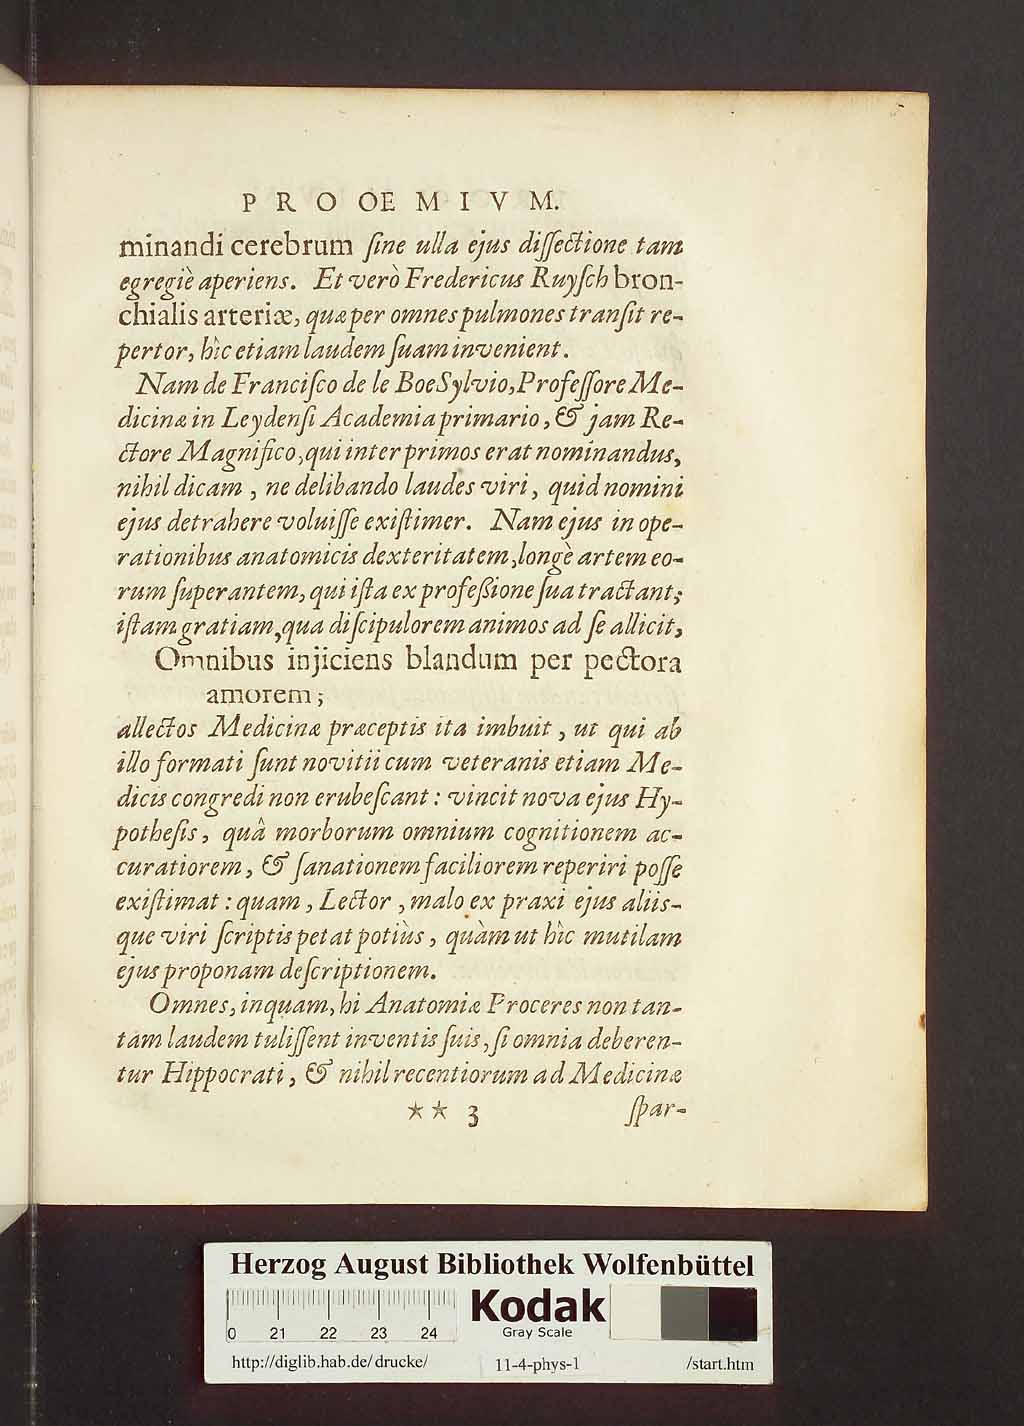 P R O OE M I V M.
minandi cerebrum ſine ulla ejus diſſectione tam
egregiè aperiens. Et verò Fredericus Ruyſch bron-
chialis arteriæ, quæ per omnes pulmones tranſit re-
pertor, hîc etiam laudem ſuam invenient.
Nam de Franciſco de le Boe Sylvio, Profeſſore Me-
dicinæ in Leydenſi Academia primario, & jam Re-
ctore Magnifico, qui inter primos erat nominandus,
nihil dicam, ne delibando laudes viri, quid nomini
ejus detrahere voluiſſe exiſtimer. Nam ejus in ope-
rationibus anatomicis dexteritatem, longè artem eo-
rum ſuperantem, qui iſta ex profeßione ſua tractant;
iſtam gratiam, qua diſcipulorem animos ad ſe allicit,
Omnibus injiciens blandum per pectora
amorem;
allectos Medicinæ præceptis ita imbuit, ut qui ab
illo formati ſunt novitii cum veteranis etiam Me-
dicis congredi non erubeſcant: vincit nova ejus Hy-
potheſis, quâ morborum omnium cognitionem ac-
curatiorem, & ſanationem faciliorem reperiri poſſe
exiſtimat: quam, Lector, malo ex praxi ejus aliis-
que viri ſcriptis petat potiùs, quàm ut hîc mutilam
ejus proponam deſcriptionem.
Omnes, inquam, hi Anatomiæ Proceres non tan-
tam laudem tuliſſent inventis ſuis, ſi omnia deberen-
tur Hippocrati, & nihil recentiorum ad Medicinæ
** 3 ſpar-
Herzog August Bibliothek Wolfenbüttel
Kodak
Gray Scale
0 21 22 23 24
http://diglib.hab.de/drucke/ 11-4-phys-1 /start.htm